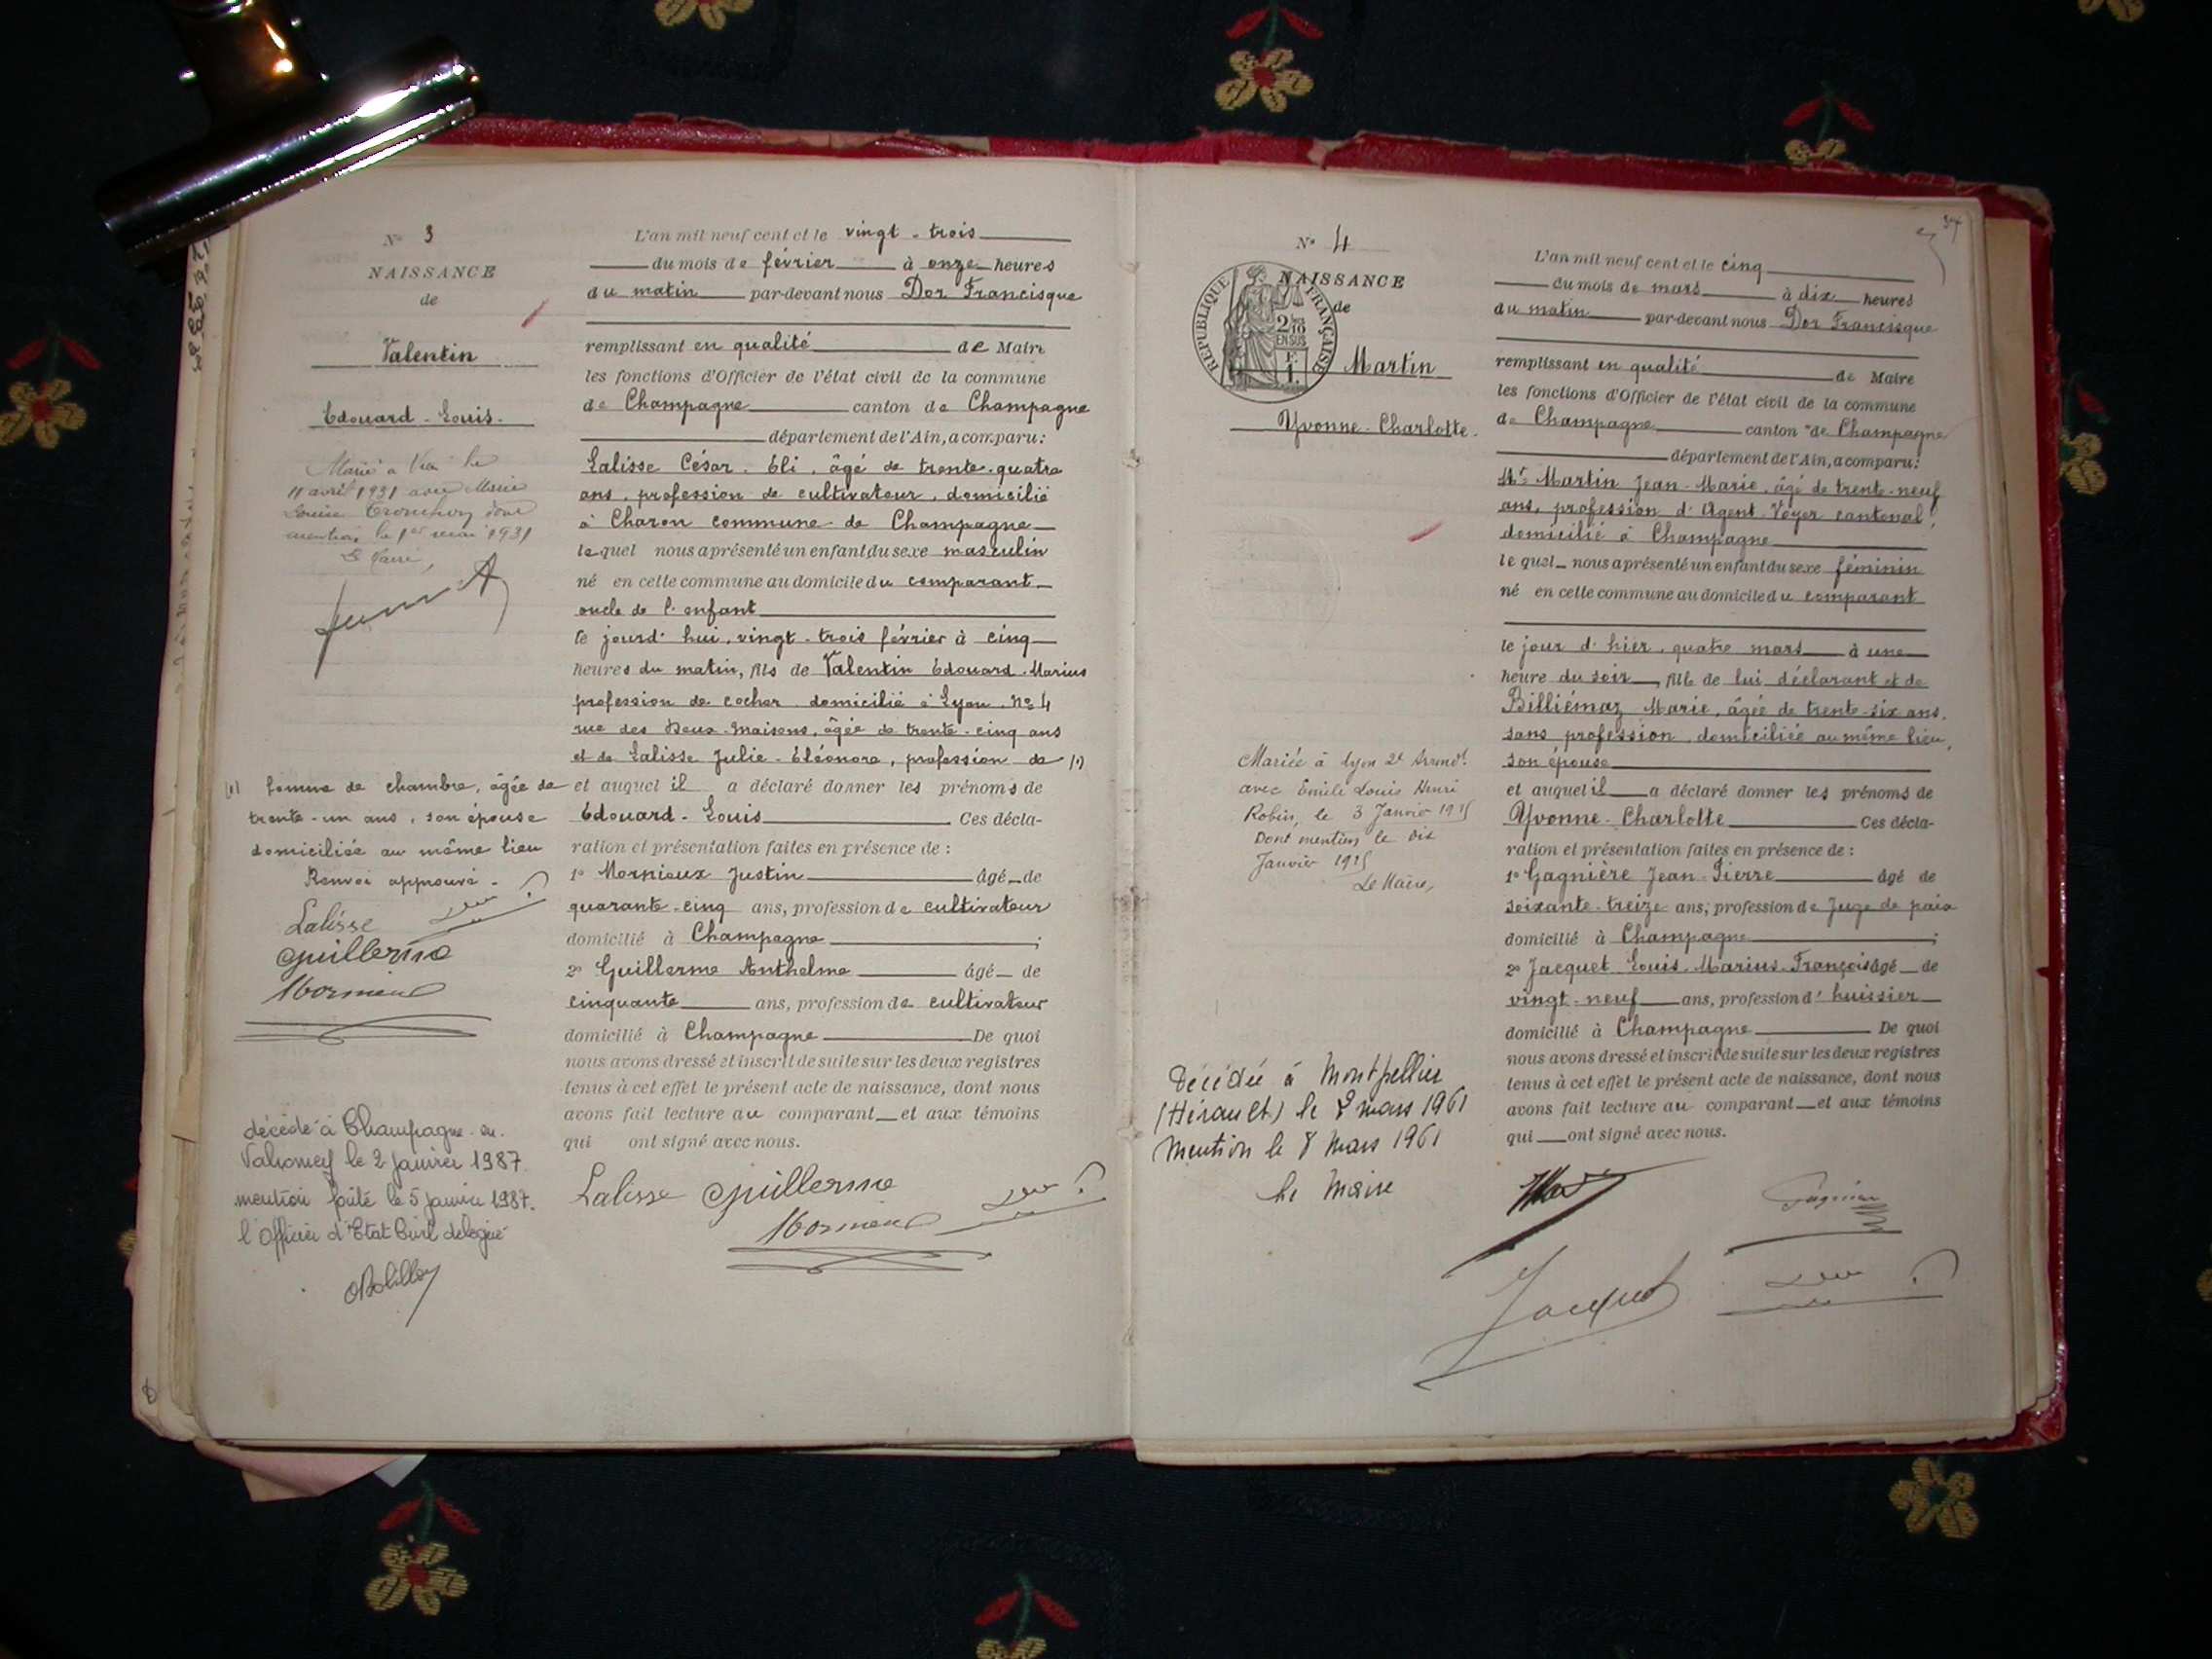 N° 3
NAISSANCE
de
Valentin
Edouard - Louis.
11 avril 1931 avec Marie
Louise dont
mention le 1er mai 1931
Le Maire,
L'an mil neuf cent et le vingt - trois
du mois de février à onze heures
du matin par-devant nous Dor Francisque
remplissant en qualité de Maire
les fonctions d'Officier de l'état civil de la commune
de Champagne canton de Champagne
département de l'Ain, a comparu:
Lalisse César. Eli, âgé de trente-quatre
ans, profession de cultivateur, domicilié
à Charon commune de Champagne
lequel nous a présenté un enfant du sexe masculin
né en cette commune au domicile du comparant
oncle de l'enfant
le jourd'hui, vingt-trois février à cinq
heures du matin, fils de Valentin Edouard-Marius
profession de cocher domicilié à Lyon, N° 4
rue des Deux-Maisons, âgée de trente-cinq ans
et de Lalisse Julie-Eléonore, profession de (1)
et auquel il a déclaré donner les prénoms de
Edouard-Louis Ces décla-
ration et présentation faites en présence de :
1° Mornieux Justin âgé de
quarante-cinq ans, profession de cultivateur
domicilié à Champagne ;
2° Guillerme Anthelme âgé de
cinquante ans, profession de cultivateur
domicilié à Champagne De quoi
nous avons dressé et inscrit de suite sur les deux registres
tenus à cet effet le présent acte de naissance, dont nous
avons fait lecture au comparant et aux témoins
qui ont signé avec nous.
Lalisse Guillerme
Mornieux
(1) femme de chambre, âgée de
trente-un ans, son épouse
domiciliée au même lieu
Renvoi approuvé -
Lalisse
Guillerme
Mornieux
décédé à Champagne-en-
Valromey le 2 janvier 1987.
mention faite le 5 janvier 1987.
l'Officier d'Etat Civil délégué
N° 4
NAISSANCE
de
REPUBLIQUE FRANÇAISE
2/10
EN SUS
Martin
Yvonne-Charlotte.
Mariée à Lyon 2e Arrondt
avec Emile Louis Henri
Robin, le 3 Janvier 1925
Dont mention le dix
Janvier 1925
Le Maire,
Décédée à Montpellier
(Hérault) le 2 mars 1961
Mention le 8 Mars 1961
Le Maire
37
L'an mil neuf cent et le cinq
du mois de mars à dix heures
du matin par-devant nous Dor Francisque
remplissant en qualité de Maire
les fonctions d'Officier de l'état civil de la commune
de Champagne canton de Champagne
département de l'Ain, a comparu:
Mr Martin Jean-Marie, âgé de trente-neuf
ans, profession d'Agent-Voyer cantonal,
domicilié à Champagne
lequel nous a présenté un enfant du sexe féminin
né en cette commune au domicile du comparant
le jour d'hier, quatre mars à une
heure du soir, fille de lui déclarant et de
Billiémaz Marie, âgée de trente-six ans,
sans profession, domiciliée au même lieu,
son épouse
et auquel il a déclaré donner les prénoms de
Yvonne-Charlotte Ces décla-
ration et présentation faites en présence de :
1° Gagnière Jean-Pierre âgé de
soixante-treize ans, profession de Juge de paix
domicilié à Champagne ;
2° Jacquet Louis-Marius-François âgé de
vingt-neuf ans, profession d'huissier
domicilié à Champagne De quoi
nous avons dressé et inscrit de suite sur les deux registres
tenus à cet effet le présent acte de naissance, dont nous
avons fait lecture au comparant et aux témoins
qui ont signé avec nous.
Gagnière
Jacquet